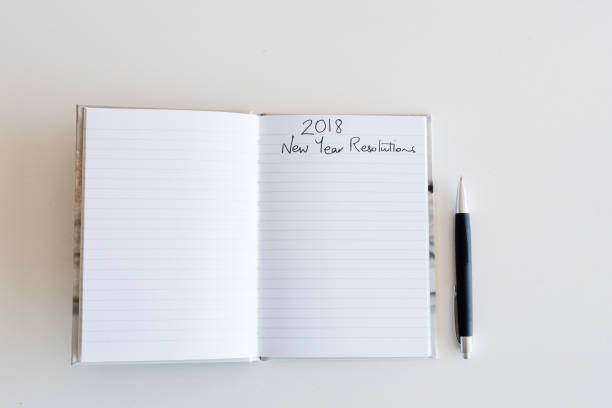 2018
New Year Resolutions